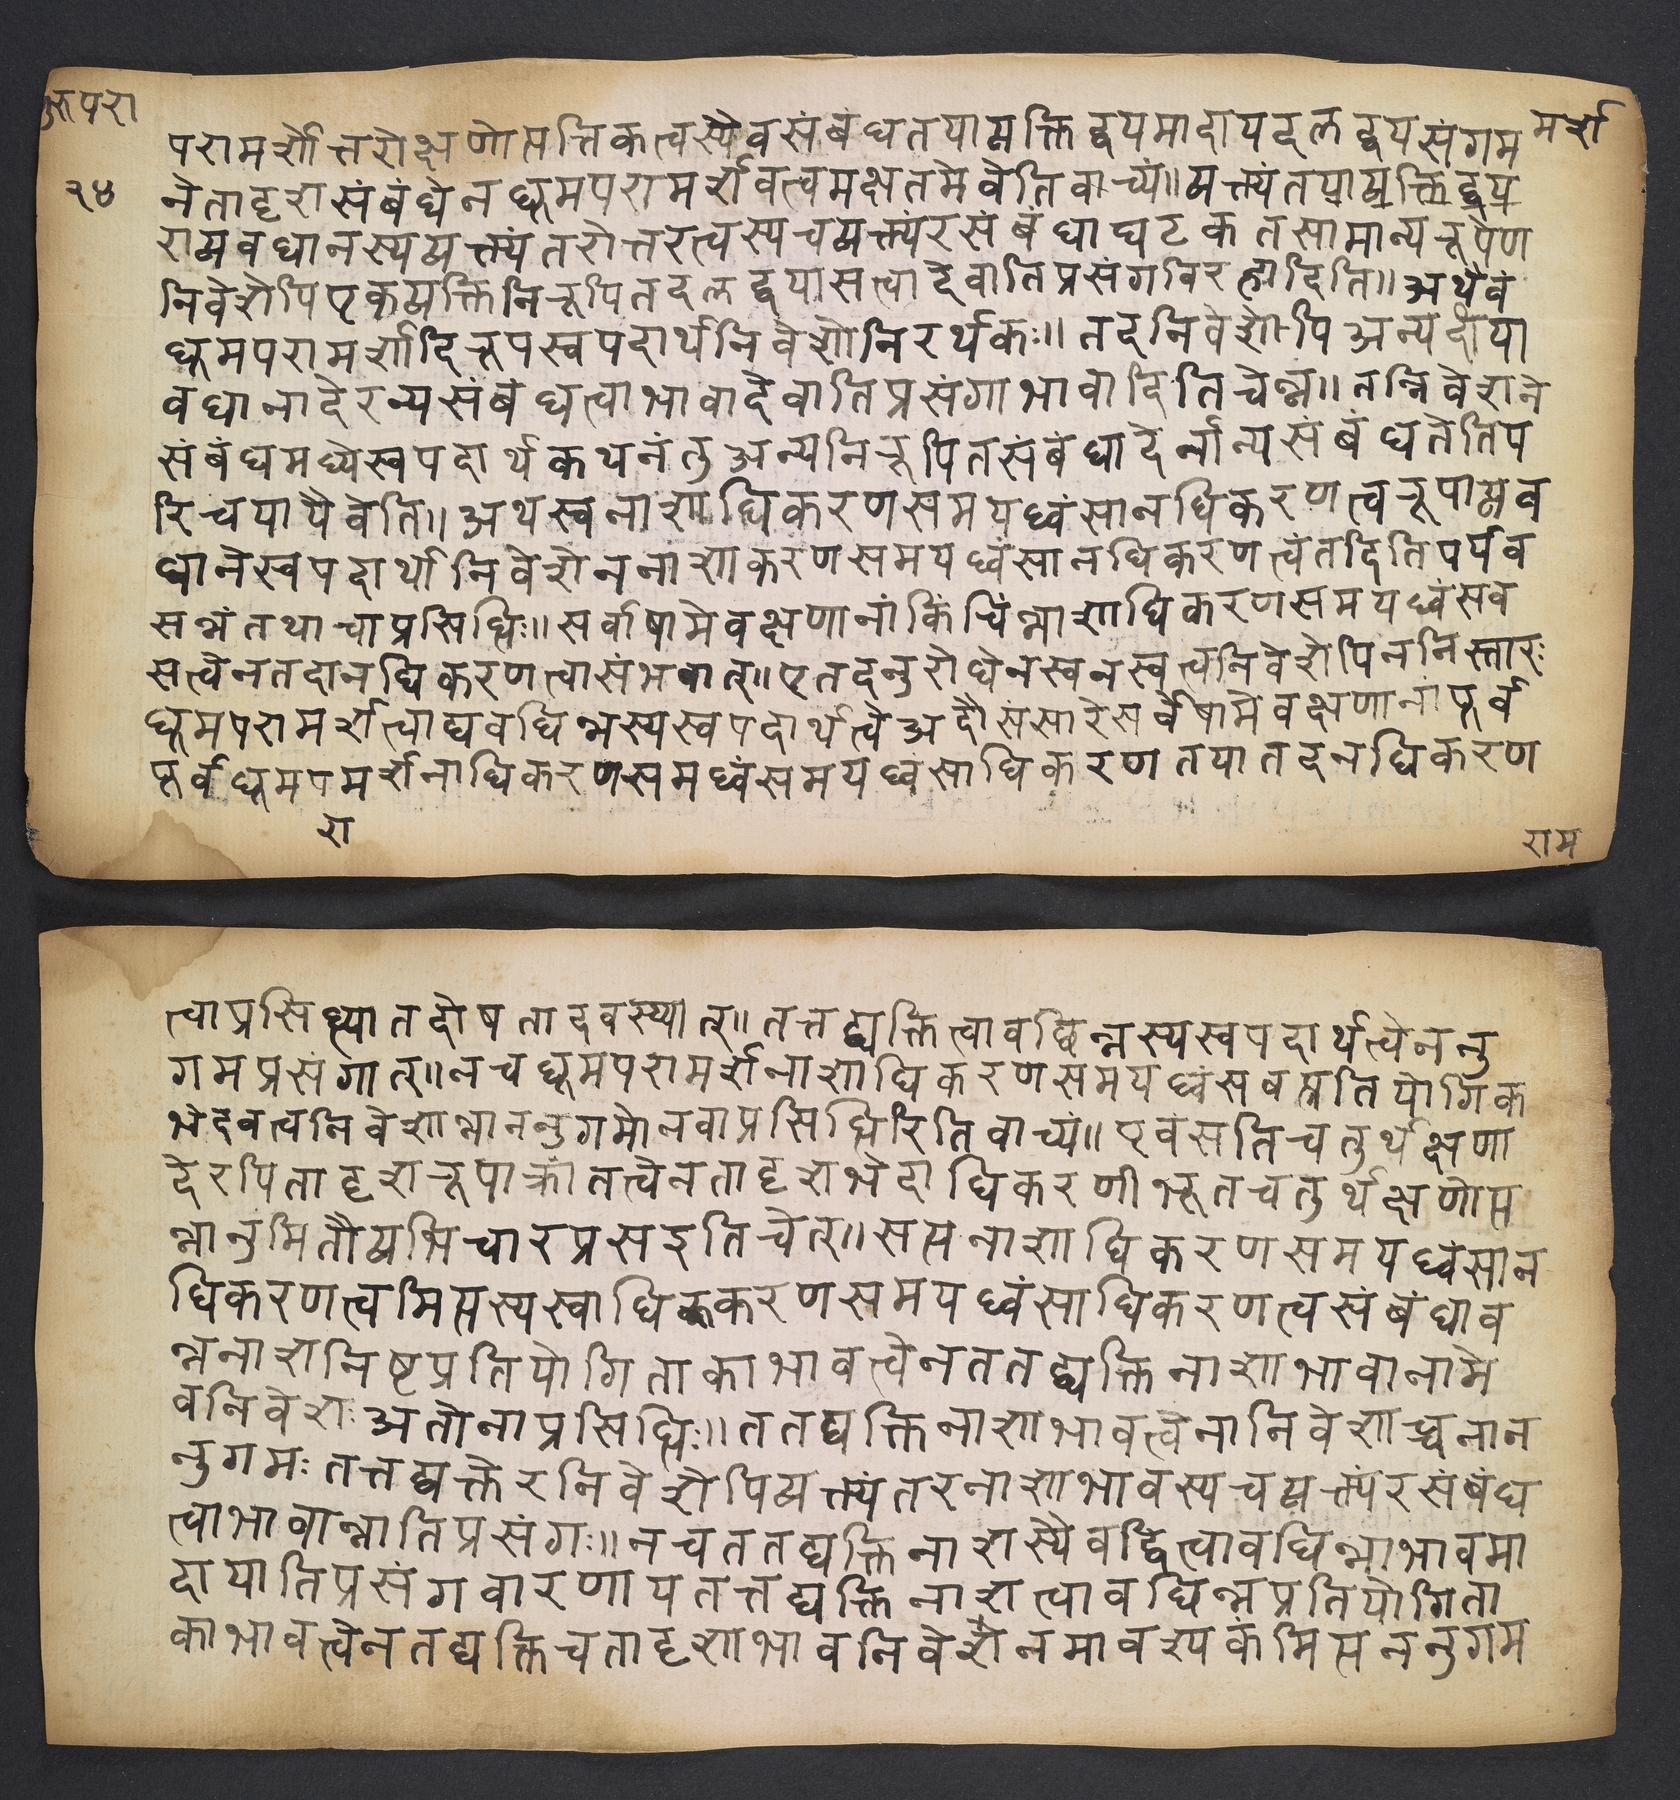 रूपरा
मर्श
परामर्शोत्तरोक्षणोत्पत्तिकत्वस्यैव संबंधतया व्यक्तिद्वयमादाय दलद्वयसंगम
२४
नेतादृशसंबंधेन धूमपरामर्शवत्त्वमक्षतमेवेति वाच्यं॥ व्यक्त्यंतया व्यक्तिद्वय
राव्यवधानस्य व्यक्त्यंतरोत्तरत्वस्य च व्यक्त्यंरसंबंधाघटकतसामान्यरूपेण
निवेशेपि एकव्यक्तिनिरूपितदलद्वयासत्त्वादेवातिप्रसंगविरहादिति॥ अथैवं
धूमपरामर्शादिरूपस्वपदार्थनिवेशोनिरर्थकः॥ तदनिवेशेपि अन्यदीया
वधानादेरन्यसंबंधत्वाभावादेवातिप्रसंगाभावादिति चेन्न॥ तन्निवेशने
संबंधमध्ये स्वपदार्थकथनं तु अन्यनिरूपितसंबंधादेर्नान्यसंबंधतेतिप
रिचयायैवेति॥ अथ स्वनाशाधिकरणसमयध्वंसानधिकरणत्वरूपाव्यव
धाने स्वपदार्थानिवेशेन नाशाकरणसमयध्वंसानधिकरणत्वं तदिति पर्यव
सन्नं तथा चाप्रसिद्धिः॥ सर्वाषामेव क्षणानां किंचिंन्नाशाधिकरणसमयध्वंसव
सत्त्वेन तदानधिकरणत्वासंभवात्॥ एतदनुरोधेन स्वनस्वत्वनिवेशेपि न निस्तारः
धूमपरामर्शत्वाद्यवधिन्नस्य स्वपदार्थत्वे अदौ संसारे सर्वेषामेव क्षणानां पूर्व
पूर्वधूमपमर्शनाधिकरणसमध्वंसमयध्वसाधिकरणतया तदनधिकरण
रा
राम
त्वाप्रसिध्या तद्दोषतादवस्थ्यात्॥ तत्तद्व्यक्तित्वावच्छिन्नस्य स्वपदार्थत्वेननु
गमप्रसंगात्॥ न च धूमपरामर्शनाशाधिकरणसमयध्वंसवत्प्रतियोगिक
भेदवत्त्वनिवेशान्नाननुगमो न वाप्रसिद्धिरिति वाच्यं॥ एवं सति चतुर्थक्षणा
देरपि तादृशरूपाक्रांतत्वेन तादृशभेदाधिकरणीभूतचतुर्थक्षणोत्प
न्नानुमितौ व्यभिचारप्रसइति चेत्॥ सत्पनाशाधिकरणसमयध्वंसान
धिकरणत्वमित्पस्य स्वाधिककरणसमयध्वंसाधिकरणत्वसंबंधाव
न्ननाशनिष्टप्रतियोगिताकाभावत्त्वेन ततद्व्यक्तिनाशाभावानामे
वनिवेशः अतो नाप्रसिद्धिः॥ ततद्व्यक्तिनाशाभावत्त्वेनानिवेशाच्च नान
नुगमः तत्तद्व्यक्तेरनिवेशेपि व्यक्त्यंतरनाशाभावस्य च व्यक्त्यंरसंबंध
त्वाभावान्नातिप्रसंगः॥ न च ततद्व्यक्तिनाशस्यैव द्वित्वावधिन्नाभावमा
दायातिप्रसंगवारणाय तत्तद्व्यक्तिनाशत्वावधिन्नप्रतियोगिता
काभावत्त्वेन तद्व्यक्ति च तादृशाभावनिवेशेनमावश्यकंमित्पननुगम